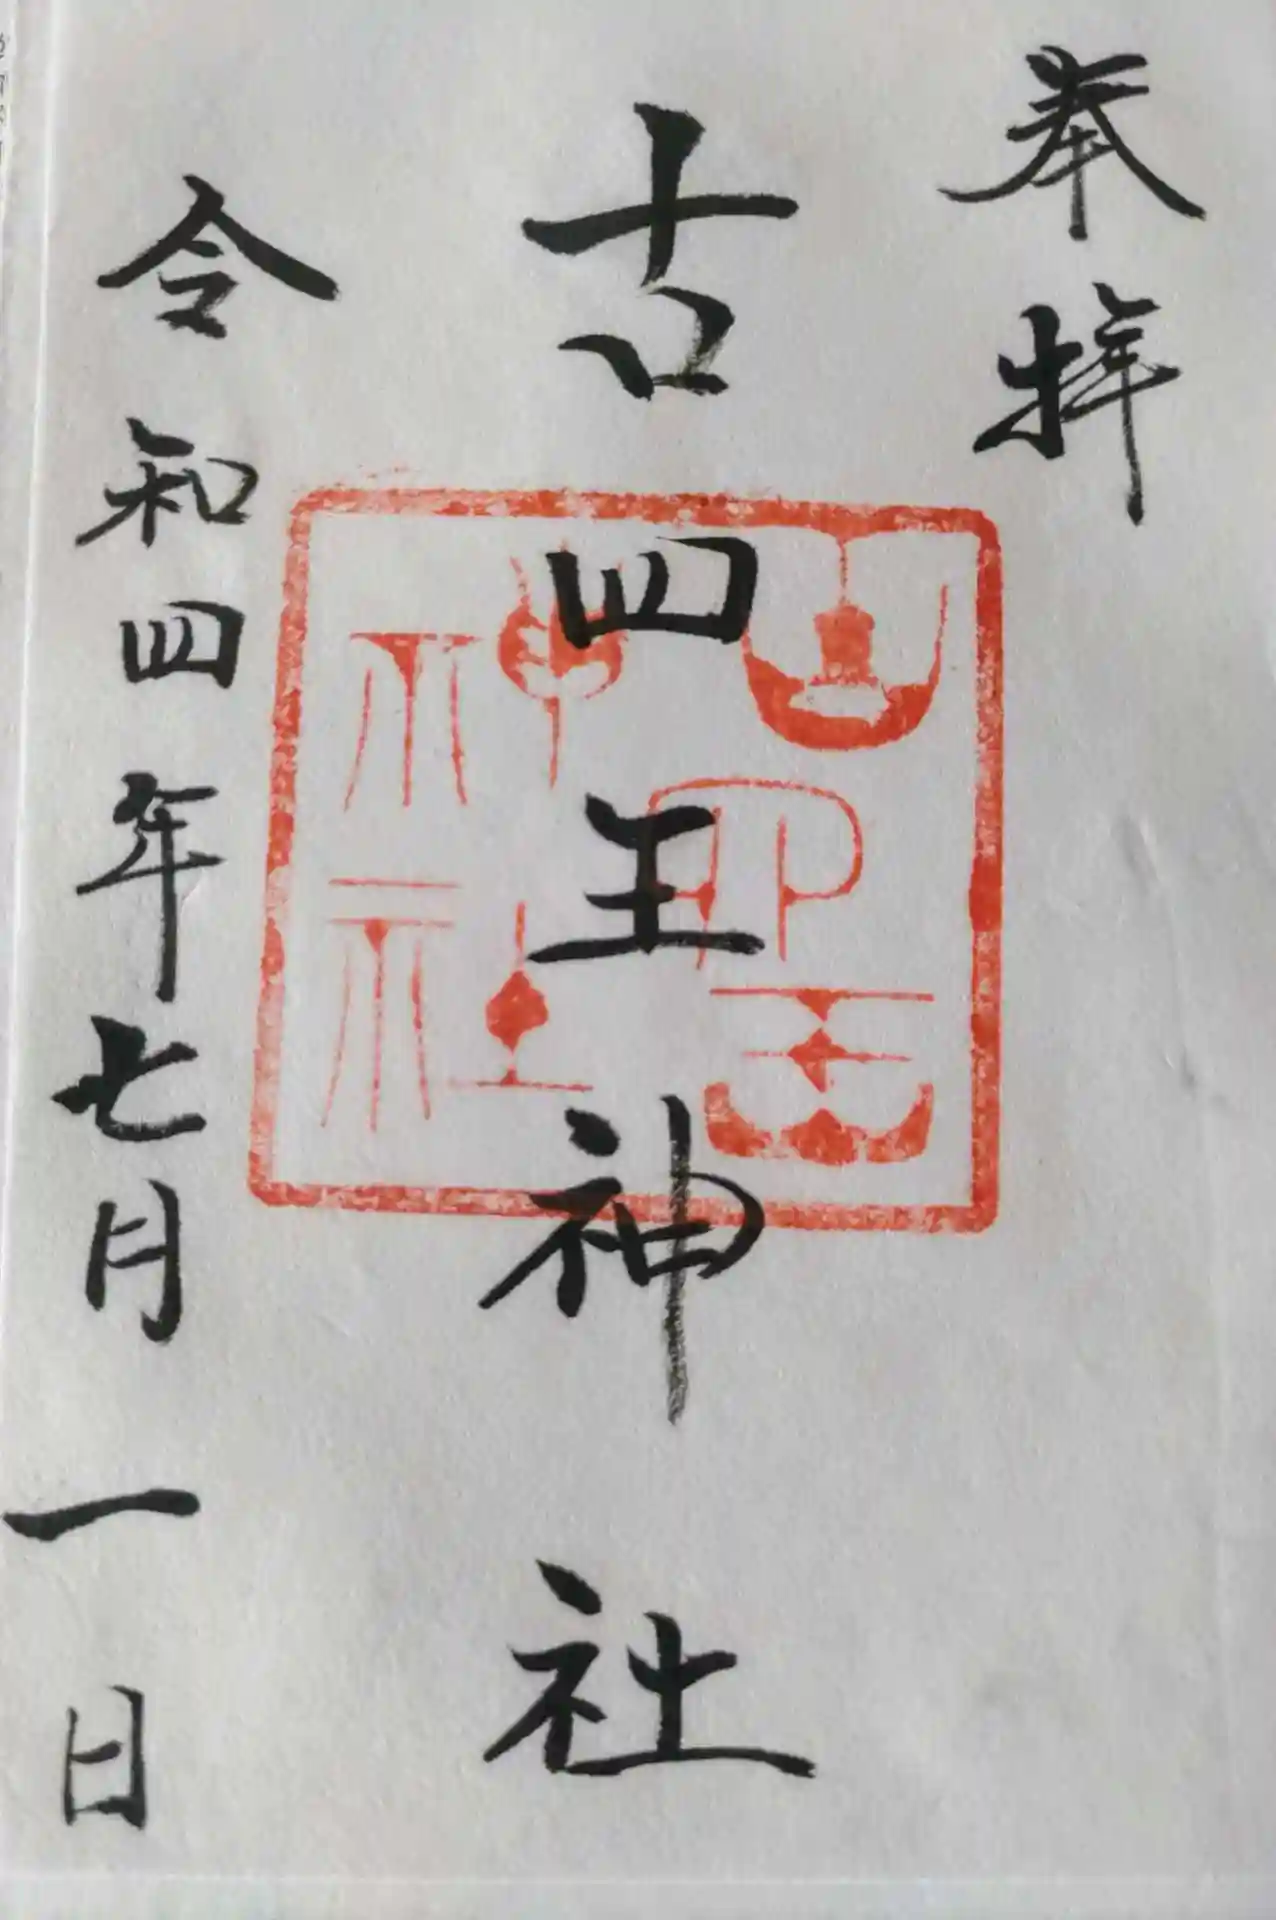 奉拝
古四王神社
古四王
神社
令和四年七月一日